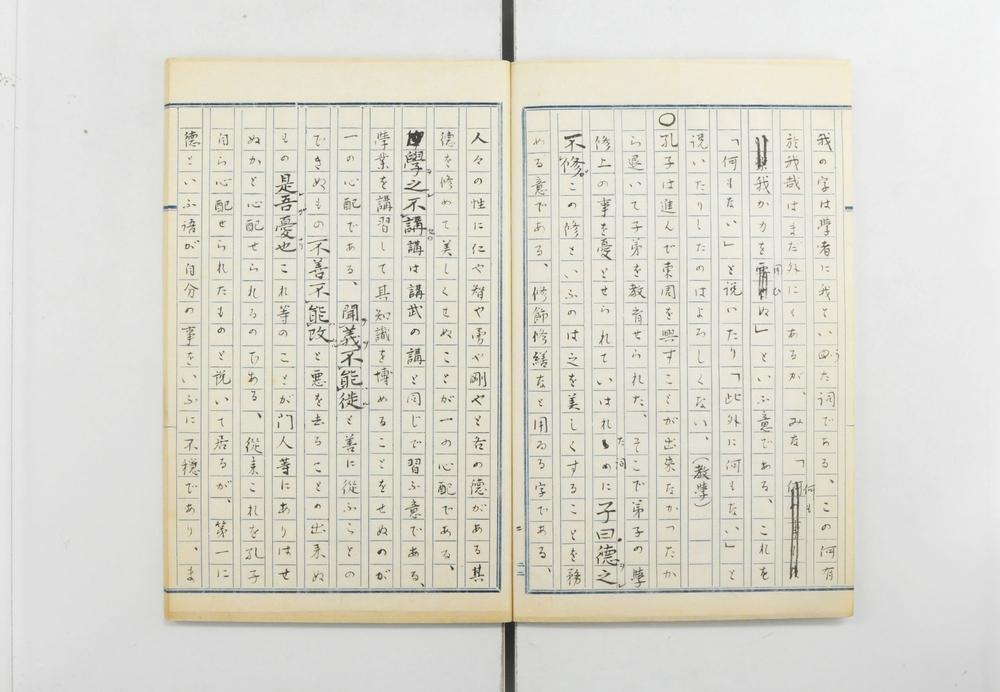 我の字は學者に我とい四うた詞である、この何有
於我哉はまだ外にくあるが、みな「何も
我かカを用ひぬ」といふ意である、これを
「何もない」と説いたり「此外に何もない」と
説いたりしたのはよろしくない、(教學)
○孔子は進んで東周を興すことが出来なかつたか
ら退いて子弟を教育せられた、そこで弟子の學
修上の事を憂とせられていはれた詞めに子曰德之
不修この修といふのは之を美しくすることを務
める意である、修飾修繕なと用ゐる字である、
人々の性に仁や智や勇べ剛やと各の德がある其
德を修めて美しくせぬことが一の心配である、
學之不講講は講武の講と同じで習ふ意である、
學業を講習して其知識を博めることをせぬのが
一の心配である、聞義不能徙と善に從ふことの
できぬもの不善不能改と悪を去ることの出来ぬ
もの是吾憂也これ等のことが門人等にありはせ
ぬかと心配せられるのである、從来これを孔子
自ら心配せられたものと説いて居るが、第一に
德といふ語が自分の事をいふに不穏であり、ま
二 二二